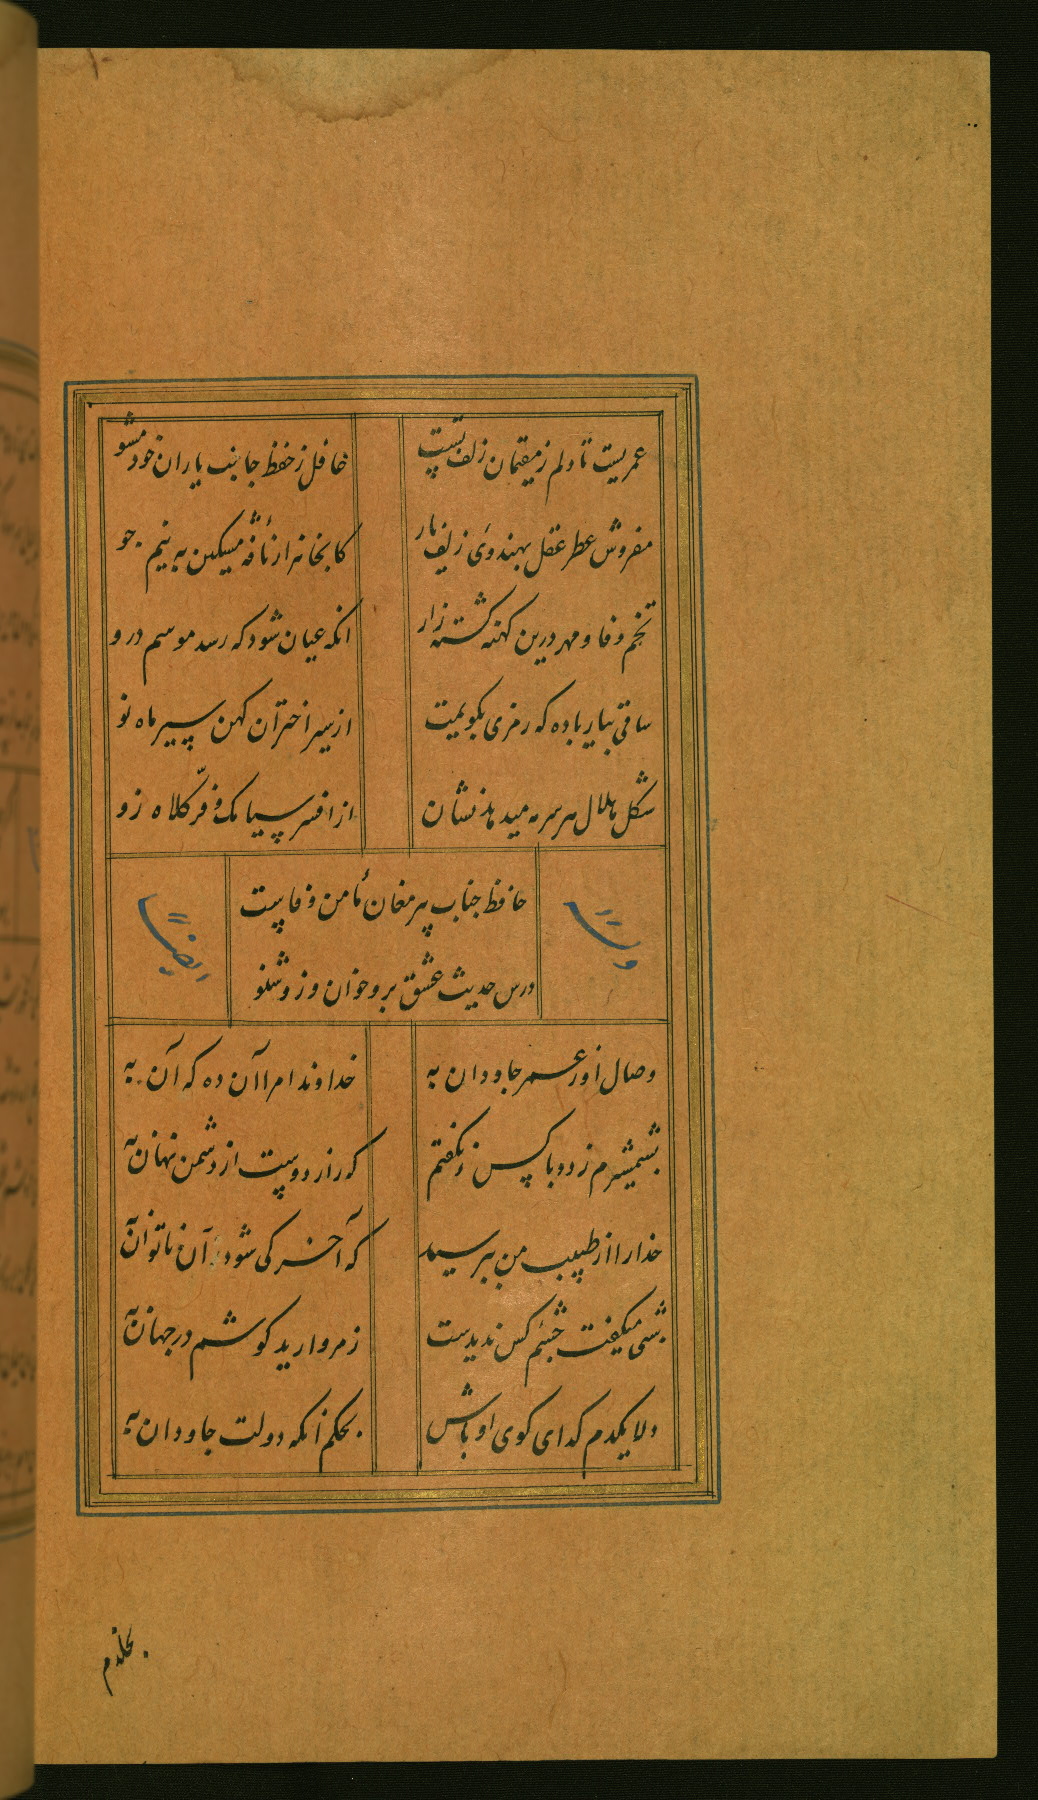 عمریست تا دلم ز مقیمان زلف تست
غافل ز حفظ جانب یاران خود مشو
مفروش عطر عقل بهندوی زلف یار
کانجا هزار نافه مشکین به نیم جو
تخم وفا و مهر درین کهنه کشته زار
انکه عیان شود که رسد موسم درو
ساقی بیار باده که رمزی بگویمت
از سیر اختران کهن سیر ماه نو
شکل هلال هر سر مه میدهد نشان
از افسر سیامک و فرّ کلاه زو
حافظ جناب پیر مغان مامن وفاست
درس حدیث عشق برو خوان و زو شنو
وله ایضاً
وصال او ز عمر جاودان به
خداوندا مرا آن ده که آن به
بشمشیرم زد و با کس نکفتم
که راز دوست از دشمن نهان به
خدا را از طبیب من بپرسید
که آخر کی شود آن ناتوان به
شبی میکفت چشم کس ندیدست
ز مروارید کوشم در جهان به
دلا یکدم کدای کوی او باش
بحکم انکه دولت جاودان به
بخلدم